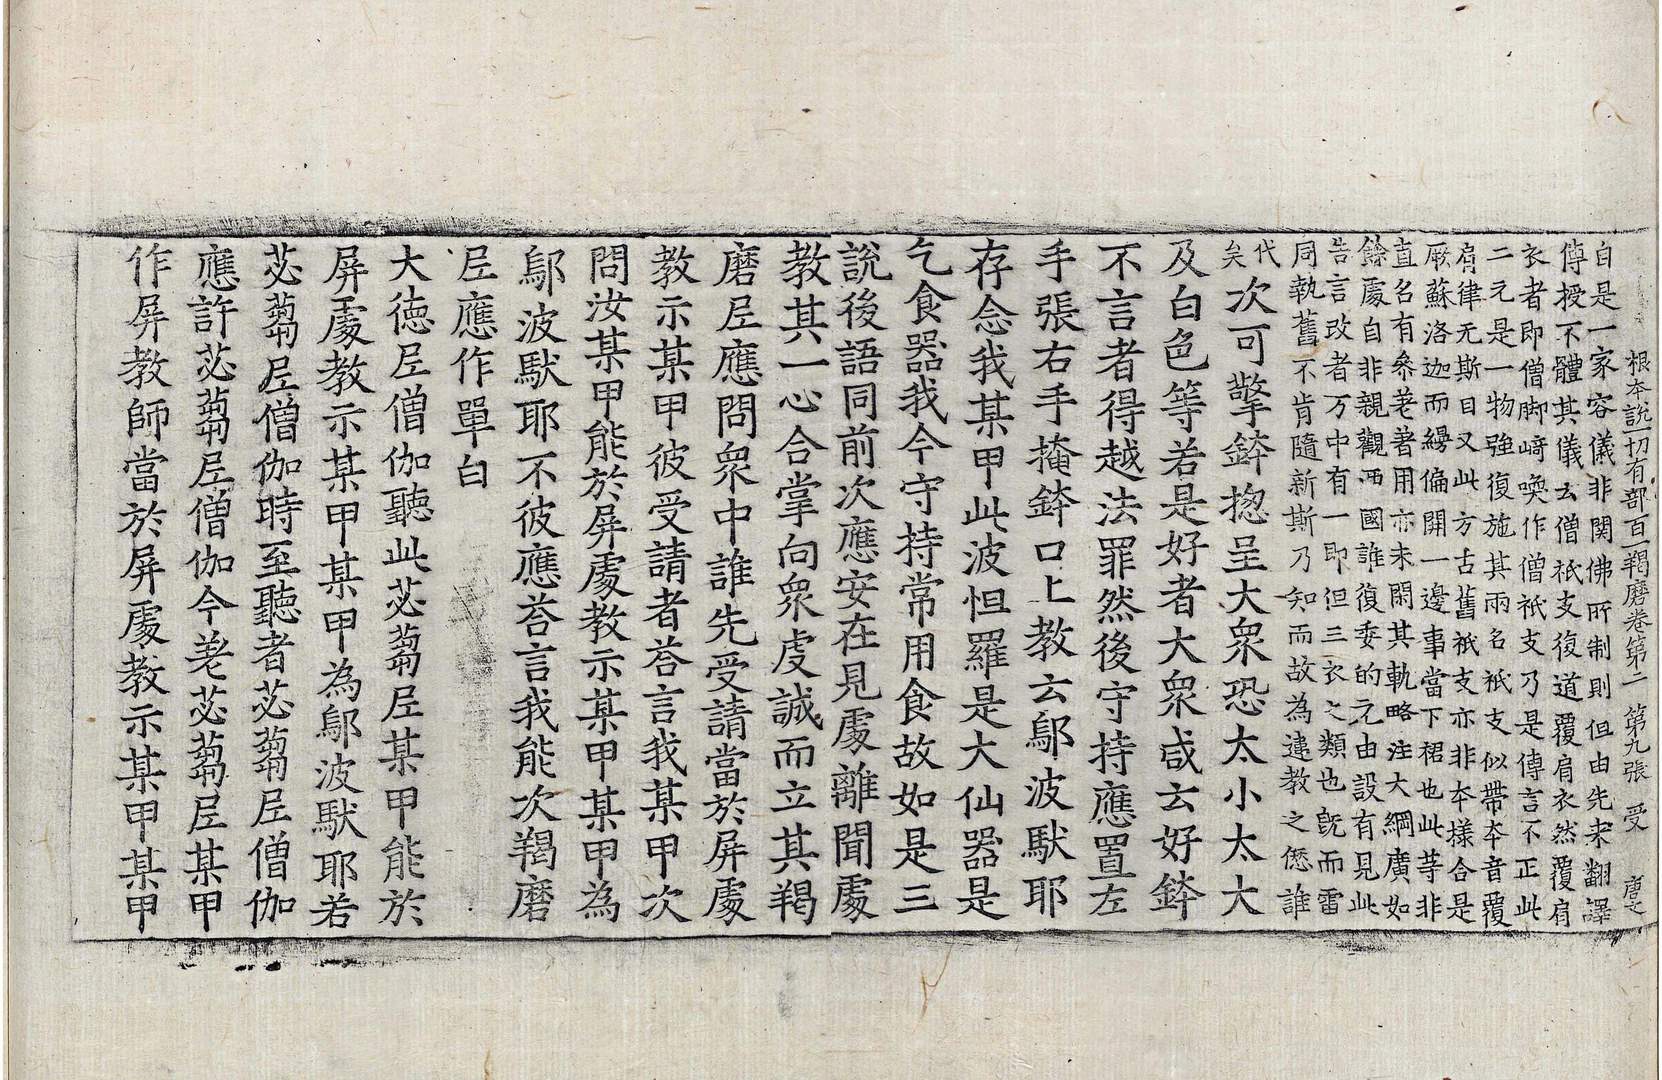 根本說一切有部百一羯磨卷第二 第九張 受
自是一家容儀非開佛所制則但由先來翻譯
傳授不體其儀云僧祇支復道覆肩衣然覆肩
衣者即僧脚崎喚作僧祇支乃是傳言不正此
二元是一物強復施其兩名祇支似帶本音覆
肩律无斯目又此方古舊祇支亦非本樣合是
厥蘇洛迦而縵偏開一邊事當下裙也此等非
直名有參差著用亦未閑其軌略注大綱廣如
餘處自非親觀西國誰復委的元由設有見此
告言改者万中有一即但三衣之類也旣而雷
同執舊不肯隨新斯乃知而故為違教之愆誰
代矣次可擎鉢揔呈大衆恐太小太大
及白色等若是好者大衆咸云好鉢
不言者得越法罪然後守持應置左
手張右手掩鉢口上教云鄔波馱耶
存念我某甲此波怛羅是大仙器是
乞食器我今守持常用食故如是三
說後語同前次應安在見處離聞處
教其一心合掌向衆虔誠而立其羯
磨尼應問衆中誰先受請當於屏處
教示某甲彼受請者荅言我某甲次
問汝某甲能於屏處教示某甲某甲為
鄔波馱耶不彼應荅言我能次羯磨
尼應作單白
大德尼僧伽聽此苾蒭尼某甲能於
屏處教示某甲某甲為鄔波馱耶若
苾蒭尼僧伽時至聽者苾蒭尼僧伽
應許苾蒭尼僧伽今差苾蒭尼某甲
作屏教師當於屏處教示某甲某甲